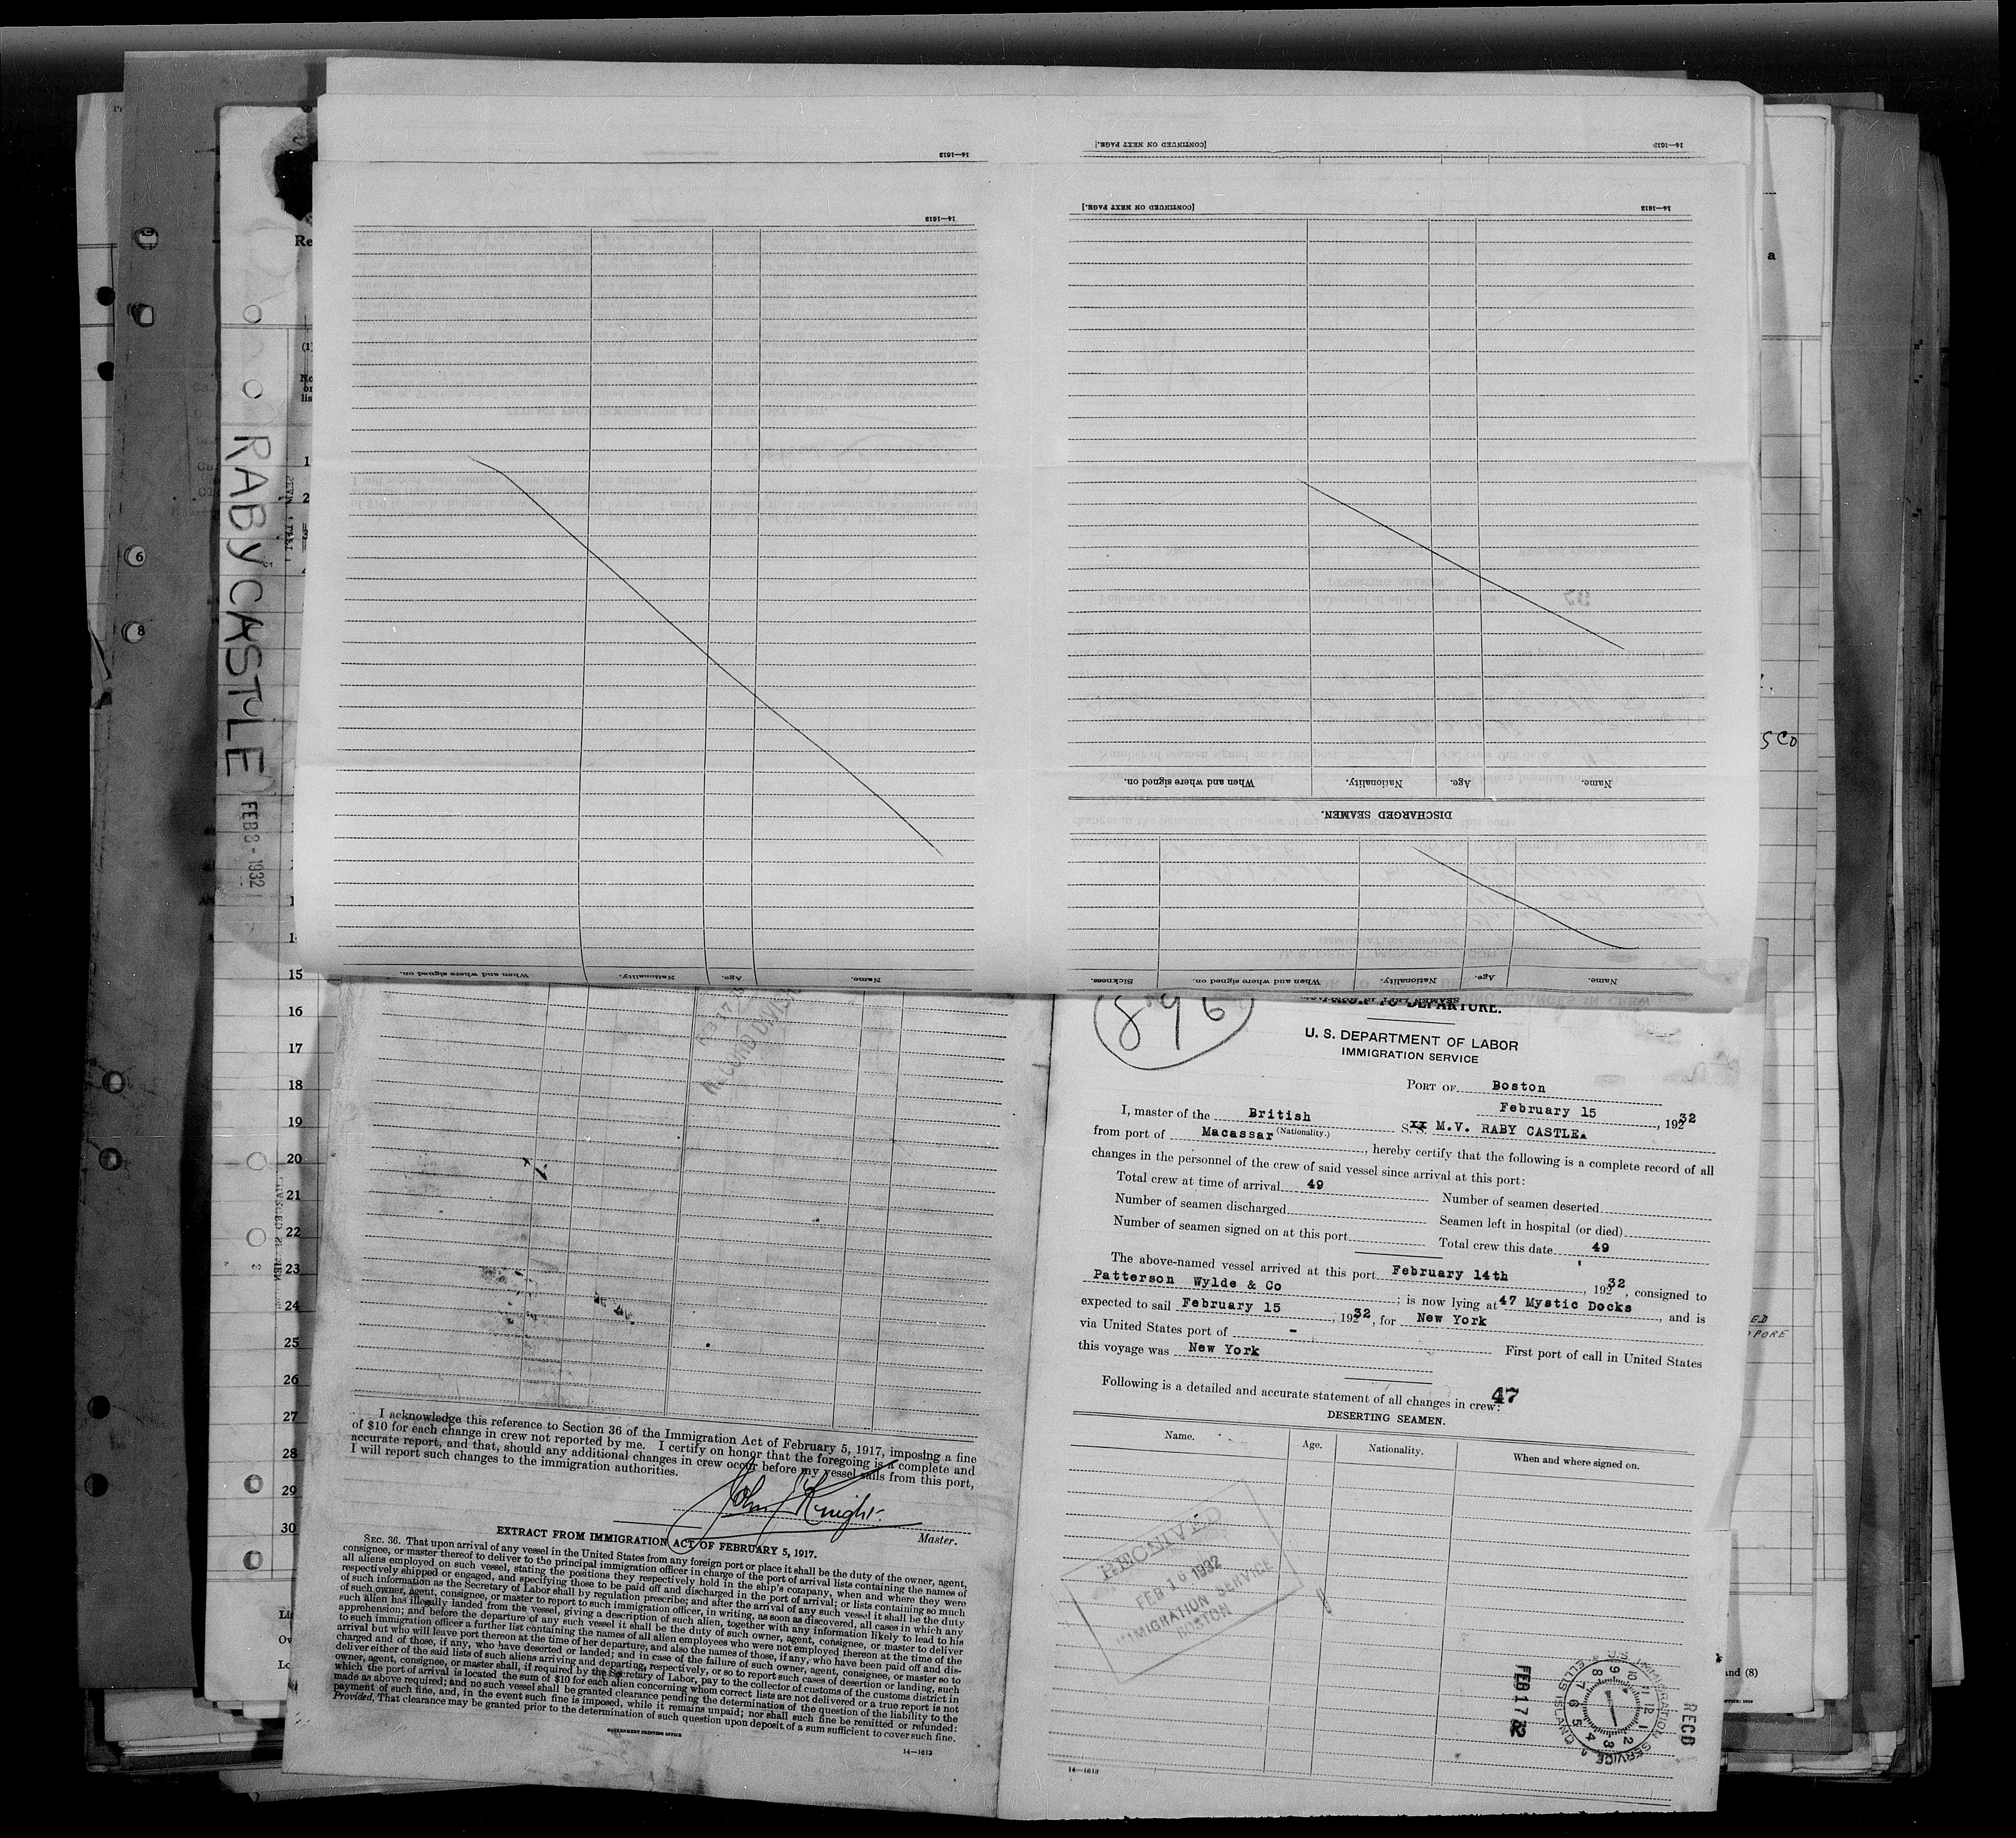 14—1613
[CONTINUED ON NEXT PAGE.]
14—1613
14—1613
[CONTINUED ON NEXT PAGE.]
14—1613
RABY CASTLE
FEB 8 - 1932
When and where signed on.
Nationality.
Age.
Name.
DISCHARGED SEAMEN.
Sickness.
When and where signed on.
Nationality.
Age.
Name.
When and where signed on.
Nationality.
Age.
Name.
15
16
17
18
19
20
21
22
23
24
25
26
27
28
29
30
RECORD DIVISION
896
TO DEPARTURE.
U. S. DEPARTMENT OF LABOR
IMMIGRATION SERVICE
PORT OF Boston
February 15, 1932
I, master of the British S.S. xx M.V. RABY CASTLE.
(Nationality.)
from port of Macassar, hereby certify that the following is a complete record of all
changes in the personnel of the crew of said vessel since arrival at this port:
Total crew at time of arrival 49 Number of seamen deserted
Number of seamen discharged Seamen left in hospital (or died)
Number of seamen signed on at this port Total crew this date 49
The above-named vessel arrived at this port February 14th, 1932, consigned to
Patterson Wylde & Co; is now lying at 47 Mystic Docks, and is
expected to sail February 15, 1932, for New York
via United States port of - First port of call in United States
this voyage was New York
Following is a detailed and accurate statement of all changes in crew: 47
DESERTING SEAMEN.
Name. Age. Nationality. When and where signed on.
RECEIVED
FEB 16 1932
IMMIGRATION SERVICE
BOSTON
FEB 17 32
U.S. IMMIGRATION SERVICE
ELLIS ISLAND
RECD
14—1613
I acknowledge this reference to Section 36 of the Immigration Act of February 5, 1917, imposing a fine
of $10 for each change in crew not reported by me. I certify on honor that the foregoing is a complete and
accurate report, and that, should any additional changes in crew occur before my vessel sails from this port,
I will report such changes to the immigration authorities.
John J Knight.
Master.
EXTRACT FROM IMMIGRATION ACT OF FEBRUARY 5, 1917.
SEC. 36. That upon arrival of any vessel in the United States from any foreign port or place it shall be the duty of the owner, agent,
consignee, or master thereof to deliver to the principal immigration officer in charge of the port of arrival lists containing the names of
all aliens employed on such vessel, stating the positions they respectively hold in the ship's company, when and where they were
respectively shipped or engaged, and specifying those to be paid off and discharged in the port of arrival; or lists containing so much
of such information as the Secretary of Labor shall by regulation prescribe; and after the arrival of any such vessel it shall be the duty
of such owner, agent, consignee, or master to report to such immigration officer, in writing, as soon as discovered, all cases in which any
such alien has illegally landed from the vessel, giving a description of such alien, together with any information likely to lead to his
apprehension; and before the departure of any such vessel it shall be the duty of such owner, agent, consignee, or master to deliver
to such immigration officer a further list containing the names of all alien employees who were not employed thereon at the time of the
arrival but who will leave port thereon at the time of her departure, and also the names of those, if any, who have been paid off and dis-
charged and of those, if any, who have deserted or landed; and in case of the failure of such owner, agent, consignee, or master so to
deliver either of the said lists of such aliens arriving and departing, respectively, or so to report such cases of desertion or landing, such
owner, agent, consignee, or master shall, if required by the Secretary of Labor, pay to the collector of customs of the customs district in
which the port of arrival is located the sum of $10 for each alien concerning whom correct lists are not delivered or a true report is not
made as above required; and no such vessel shall be granted clearance pending the determination of the question of the liability to the
payment of such fine, and, in the event such fine is imposed, while it remains unpaid; nor shall such fine be remitted or refunded:
Provided, That clearance may be granted prior to the determination of such question upon deposit of a sum sufficient to cover such fine.
GOVERNMENT PRINTING OFFICE
14—1613